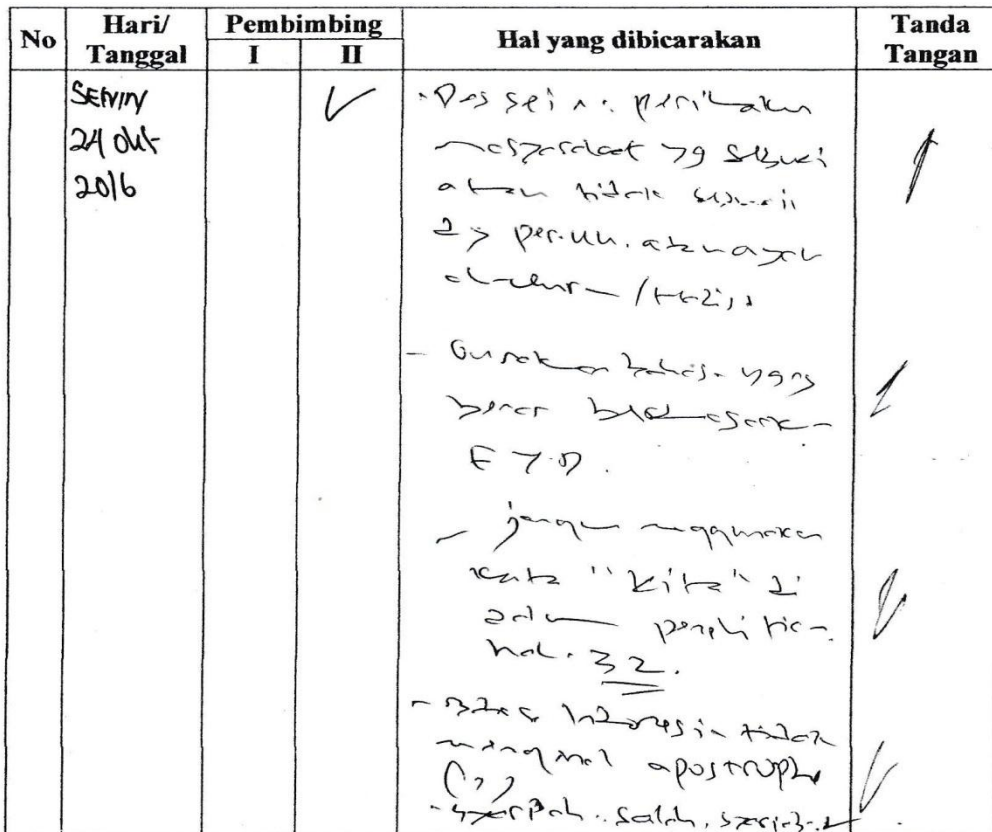 No
Hari/
Tanggal
Pembimbing
I II
Hal yang dibicarakan
Tanda
Tangan
Senin
24 Okt
2016
perilaku
masyarakat yg sesuai
atau tidak sesuai
dg per.UU. atau
- Gunakan bahasa yang
benar berdasarkan
EYD.
- jangan menggunakan
kata "kita" di
dalam penelitian
hal. 32.
- Bahasa Indonesia tidak
mengenal apostrophe
(')
- salah,